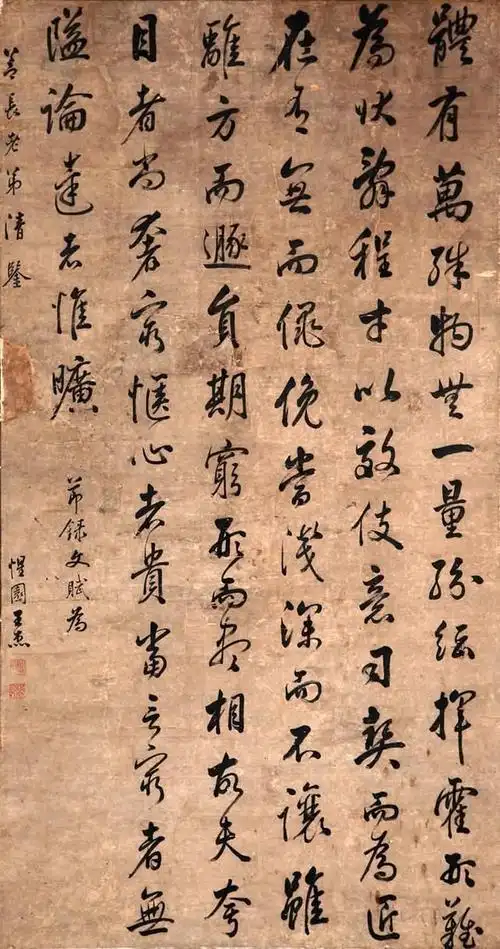 體有萬殊物無一量紛紜揮霍形難
為狀辭程才以效伎意司契而為匠
在有無而僶俛當淺深而不讓雖
離方而遯員期窮形而盡相故夫夸
目者尚奢愜心者貴當言窮者無
隘論達者惟曠
節錄文賦為
善長老弟清鑒
惺園王杰